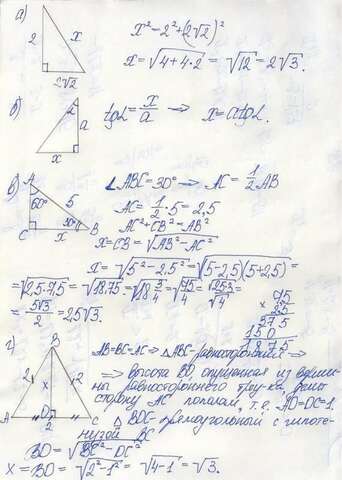 а)
2
x
2√2
x² = 2² + (2√2)²
x = √4+4·2 = √12 = 2√3.
б)
α
a
x
tgα = x/a → x = atgα.
в)
A
60°
5
30°
C
x
B
∠ABC = 30° → AC = 1/2 AB
AC = 1/2 · 5 = 2,5
AC² + CB² = AB²
x = CB = √AB² - AC²
x = √5² - 2,5² = √(5-2,5)(5+2,5) =
= √2,5·7,5 = √18,75 = √18 3/4 = √75/4 = √25·3/√4 =
= 5√3/2 = 2,5√3.
75
× 25
375
150
18,75
г)
B
2
x
2
A
D
C
2
AB=BC=AC ⇒ △ABC - равносторонний ⇒
⇒ высота BD, опущенная из верши-
ны равностороннего тр-ка делит
сторону AC пополам, т.е. AD=DC=1.
△ BDC - прямоугольный с гипоте-
нузой BC
BD = √BC² - DC²
x = BD = √2² - 1² = √4-1 = √3.